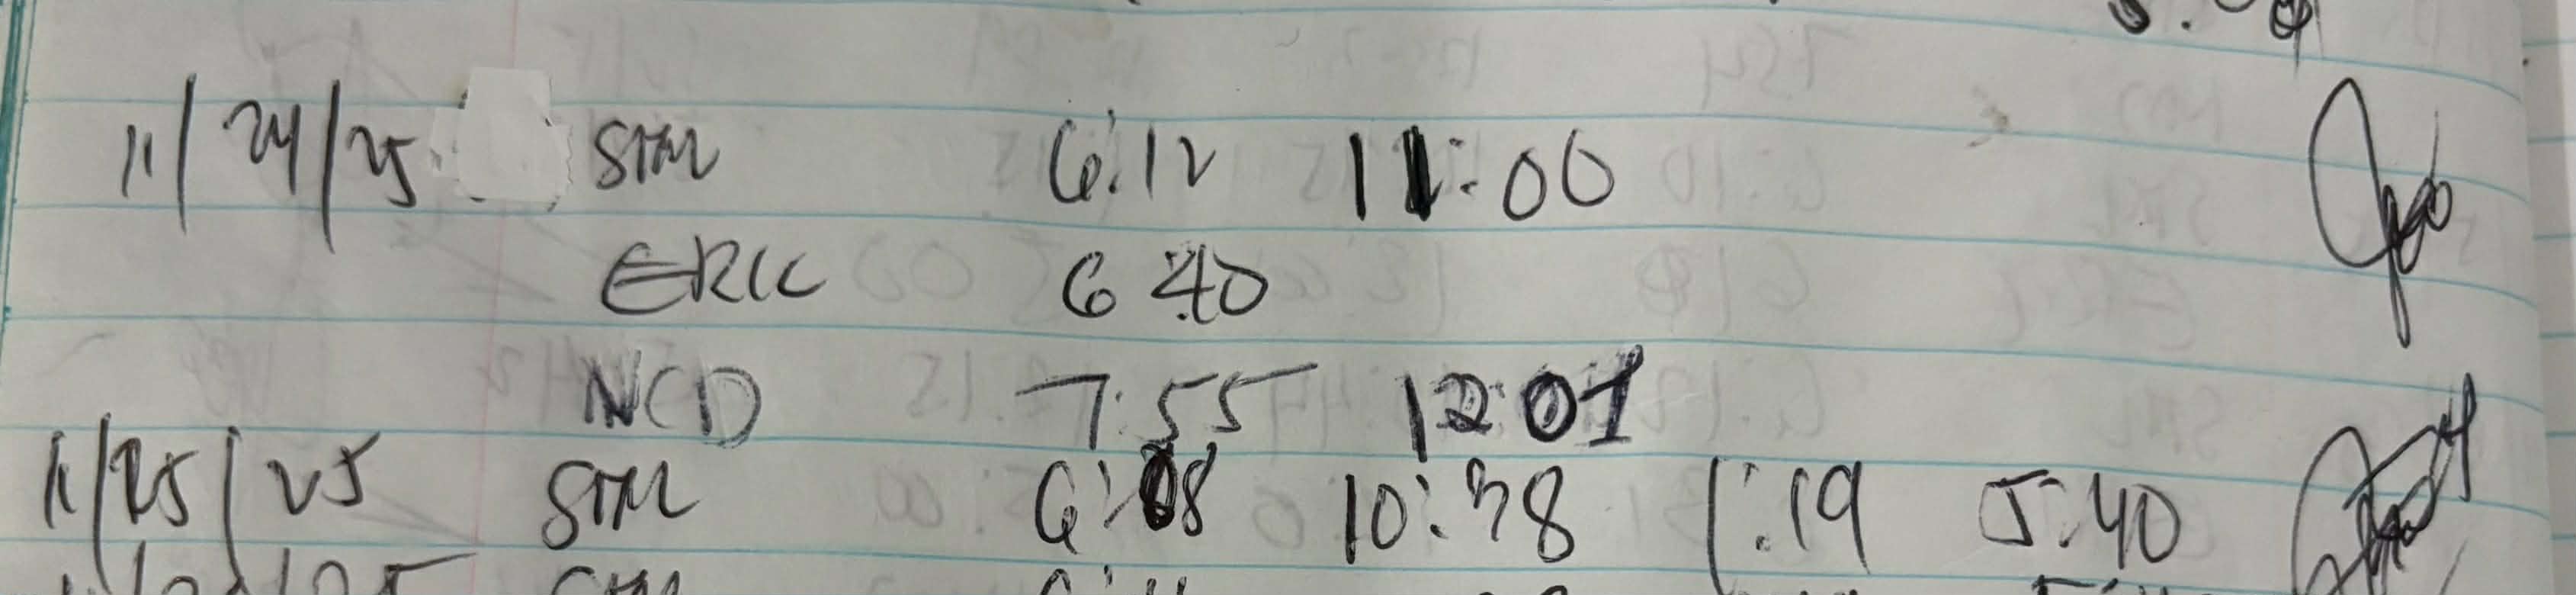 11/24/25 STM 6:12 11:00
ERIC 6:40
NCD 7:55 12:01
11/25/25 STM 6:08 10:38 1:19 5:40